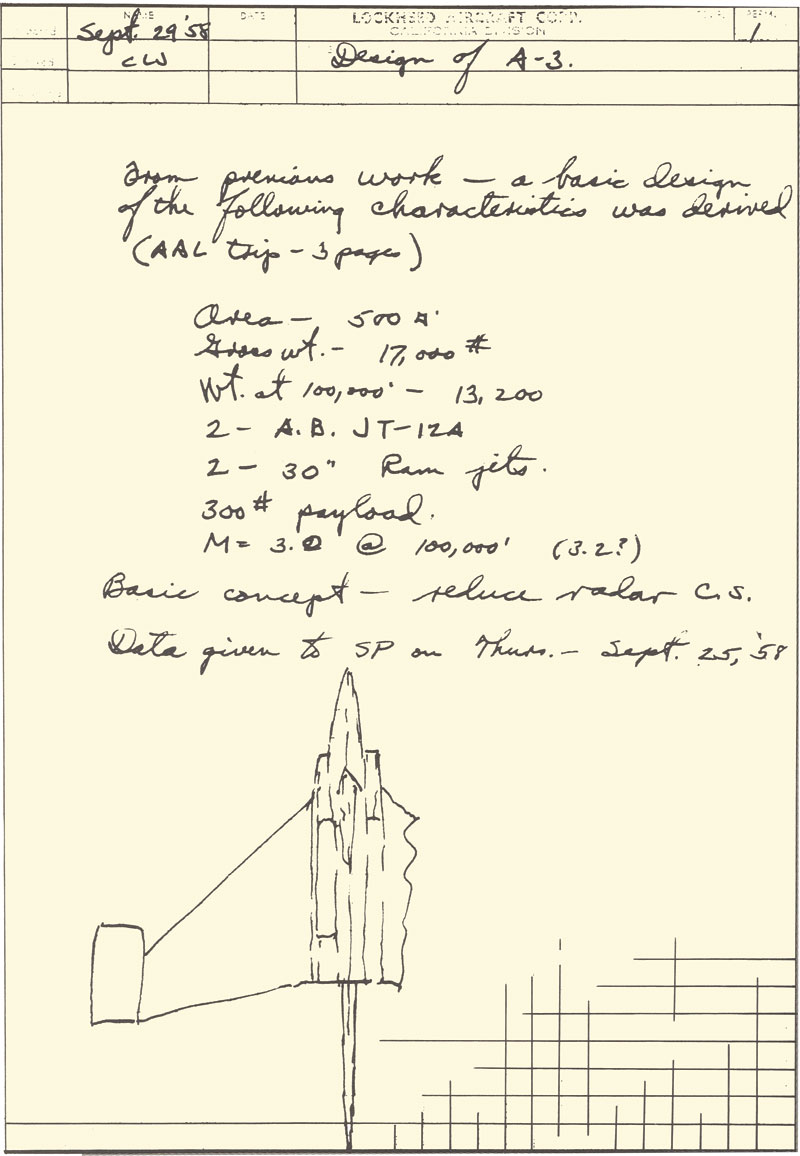 NAME
DATE
LOCKHEED AIRCRAFT CORP.
CALIFORNIA DIVISION
PERM.
Sept. 29 '58
1
CW
Design of A-3.
From previous work — a basic design
of the following characteristics was derived
(AAL trip - 3 pages)
Area — 500 □'
Gross wt. - 17,000 #
Wt. at 100,000' - 13,200
2 - A.B. JT-12A
2 - 30" Ram jets.
300 # payload.
M = 3.0 @ 100,000' (3.2?)
Basic concept — reduce radar c.s.
Data given to SP on Thurs. - Sept. 25, '58